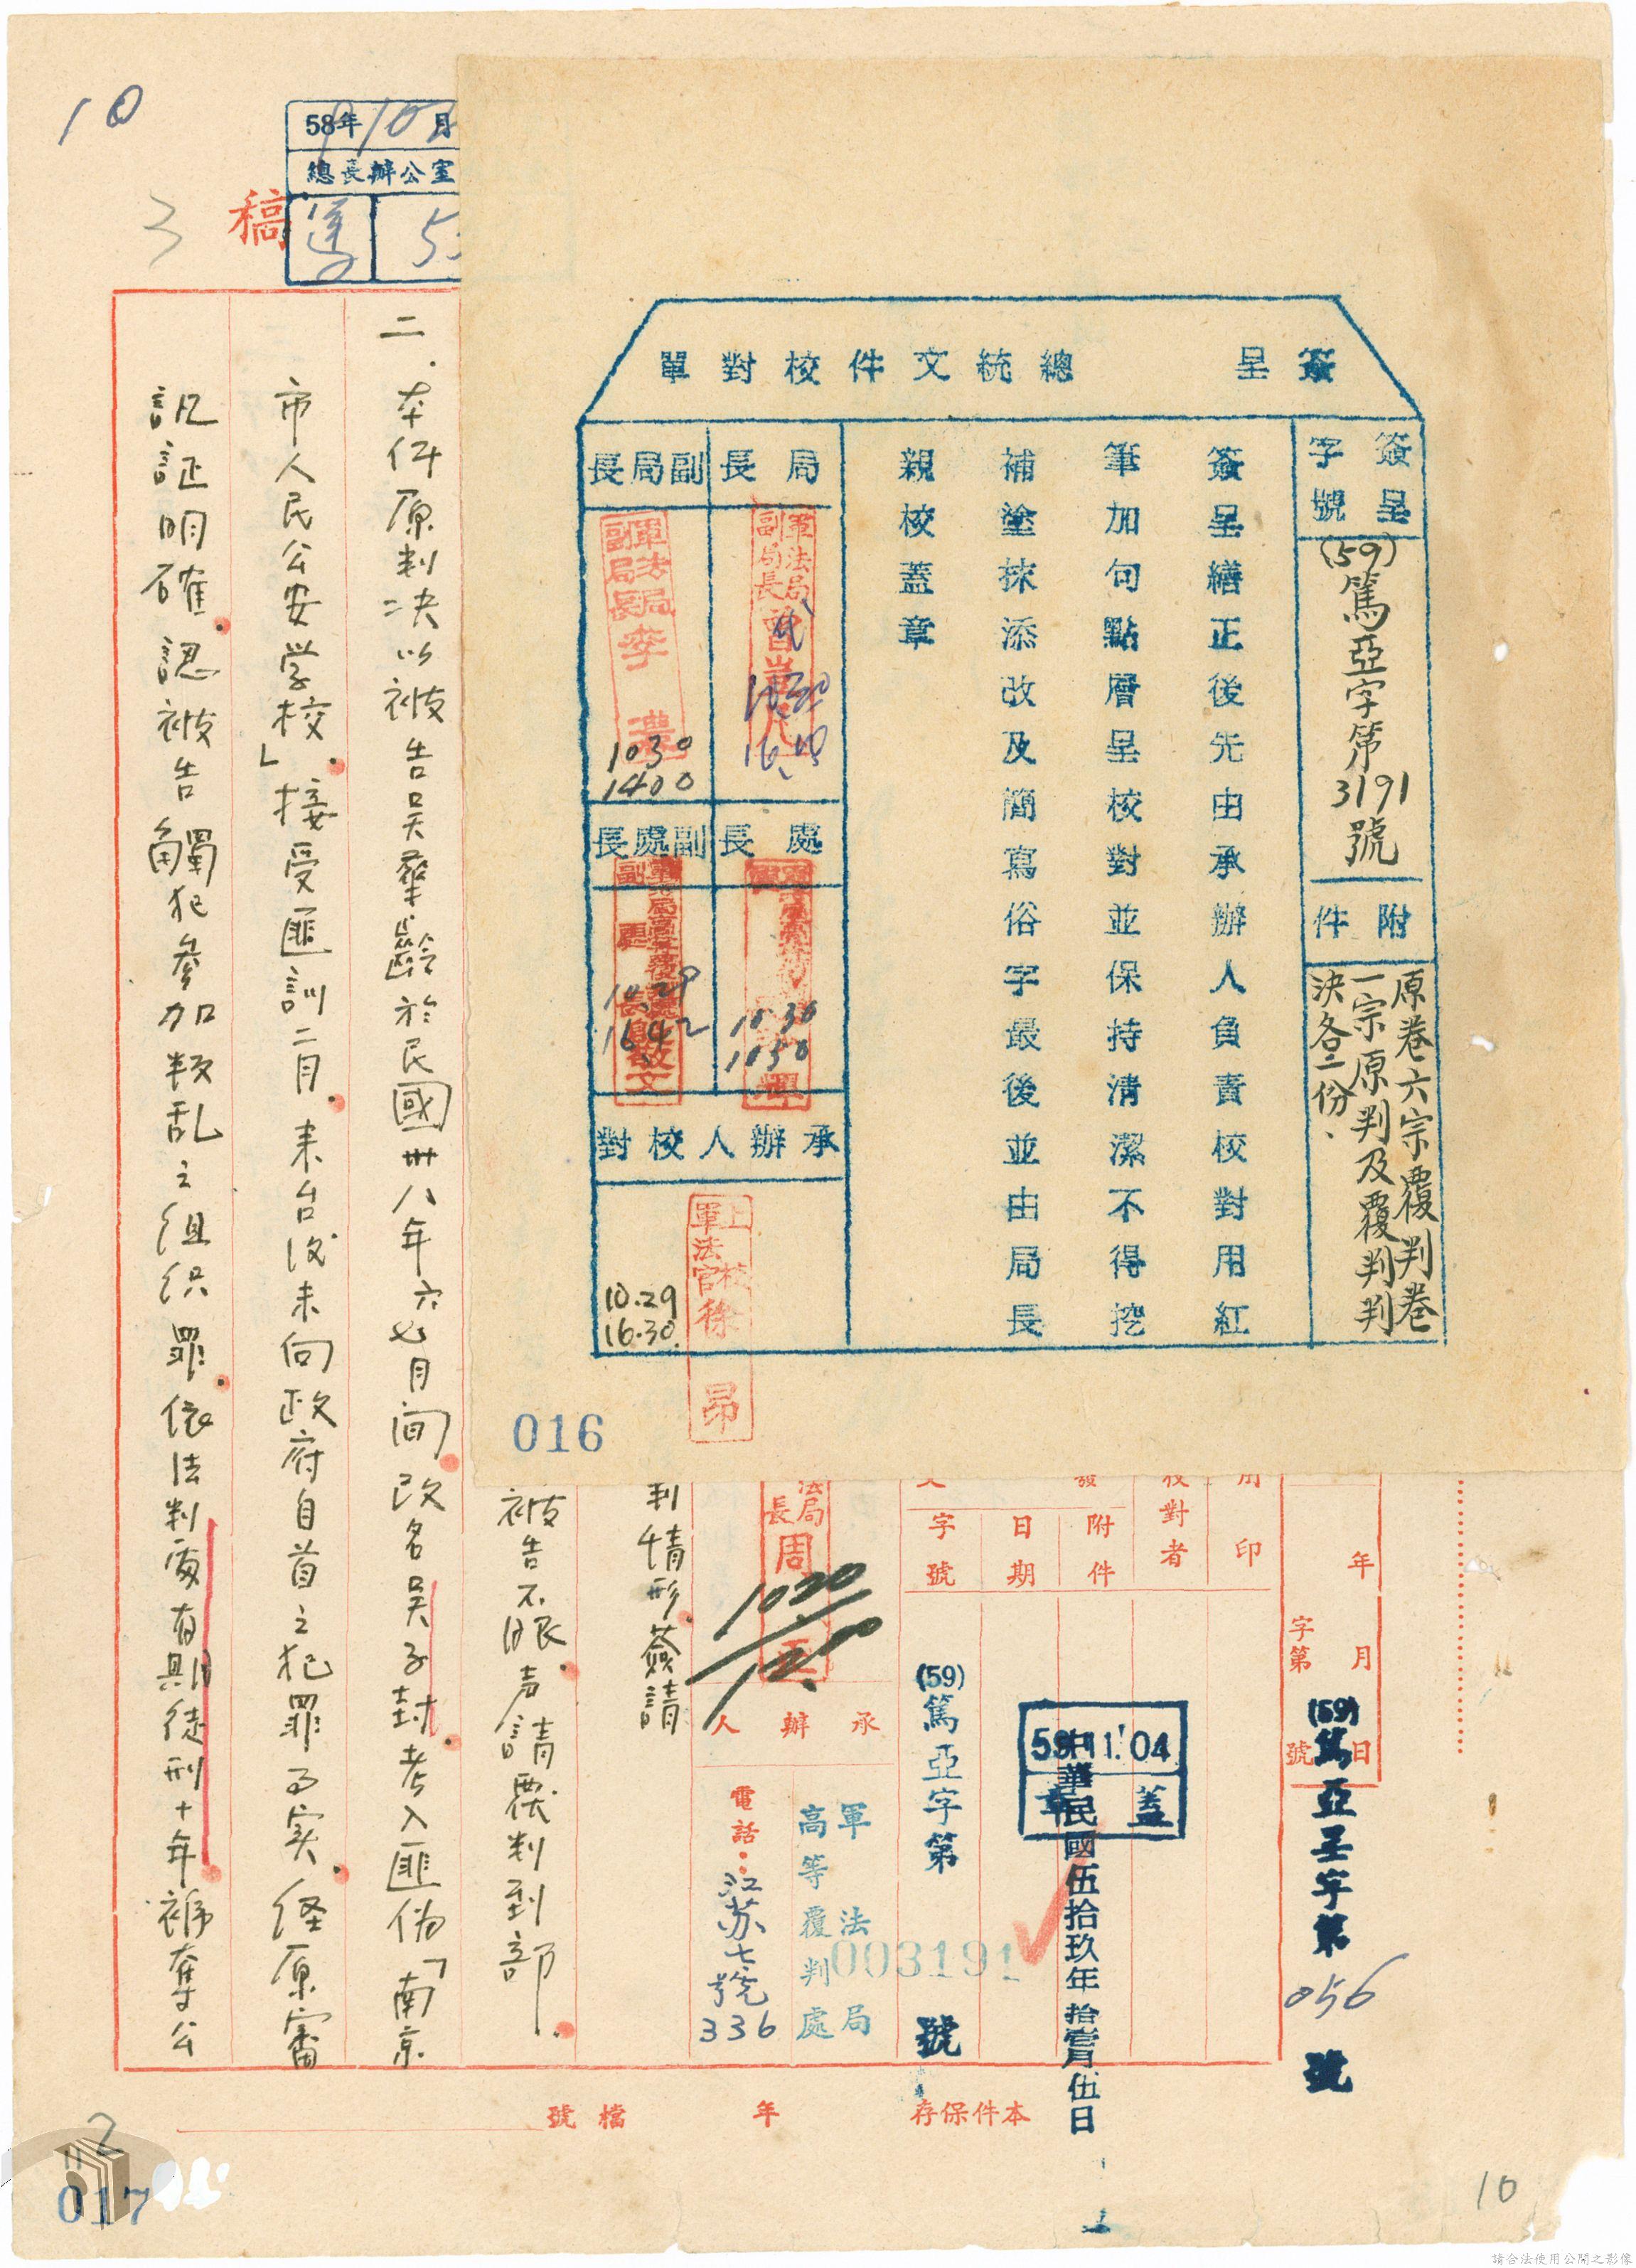 10
58年10月
總長辦公室
稿
3
簽呈 總統文件校對單
簽呈字號
(59)篤亞字第3191號
附件
原卷六宗覆判卷
一宗原判及覆判判
決各二份、
簽呈繕正後先由承辦人負責校對用紅
筆加句點層呈校對並保持清潔不得挖
補塗抹添改及簡寫俗字最後並由局長
親校蓋章
局長
軍法局副局長
代
副局長
軍法局副局長李
1030
1400
處長
10.30
1050
副處長
10.29
16.42
承辦人校對
上校軍法官徐昂
10.29
16.30
016
年月日
字第號
(59)篤亞呈字第056號
用印
校對者
發文
附件
日期
字號
59.11.04
蓋章
中華民國伍拾玖年拾壹月伍日
(59)篤亞字第003191號
法局長周
1030
承辦人
軍法局
高等覆判處
電話：江苏七號336
判情形簽請
被告不服声請覆判到部.
二.本件原判決以被告吳犖齡於民國卅八年六七月间改名吴子封.考入匪伪「南京
市人民公安学校」.接受匪訓二月.来台後未向政府自首之犯罪事実.经原審
訊証明確.認被告觸犯參加叛乱之组织罪.依法判處有期徒刑十年褫奪公
本件保存 年 檔號
2
017
10
請合法使用公開之影像